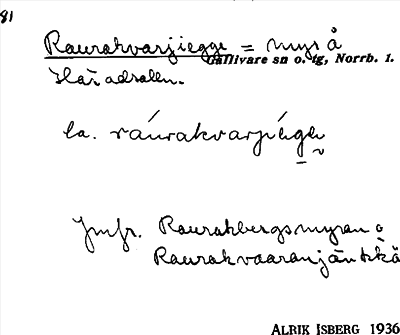 81
Raurakvarjiegge = myr å
Gällivare sn o. tg, Norrb. 1.
la. ráurakvarjiége
Jmfr. Raurakbergsmyran o
Raurakvaaranjänkkä
ALRIK ISBERG 1936